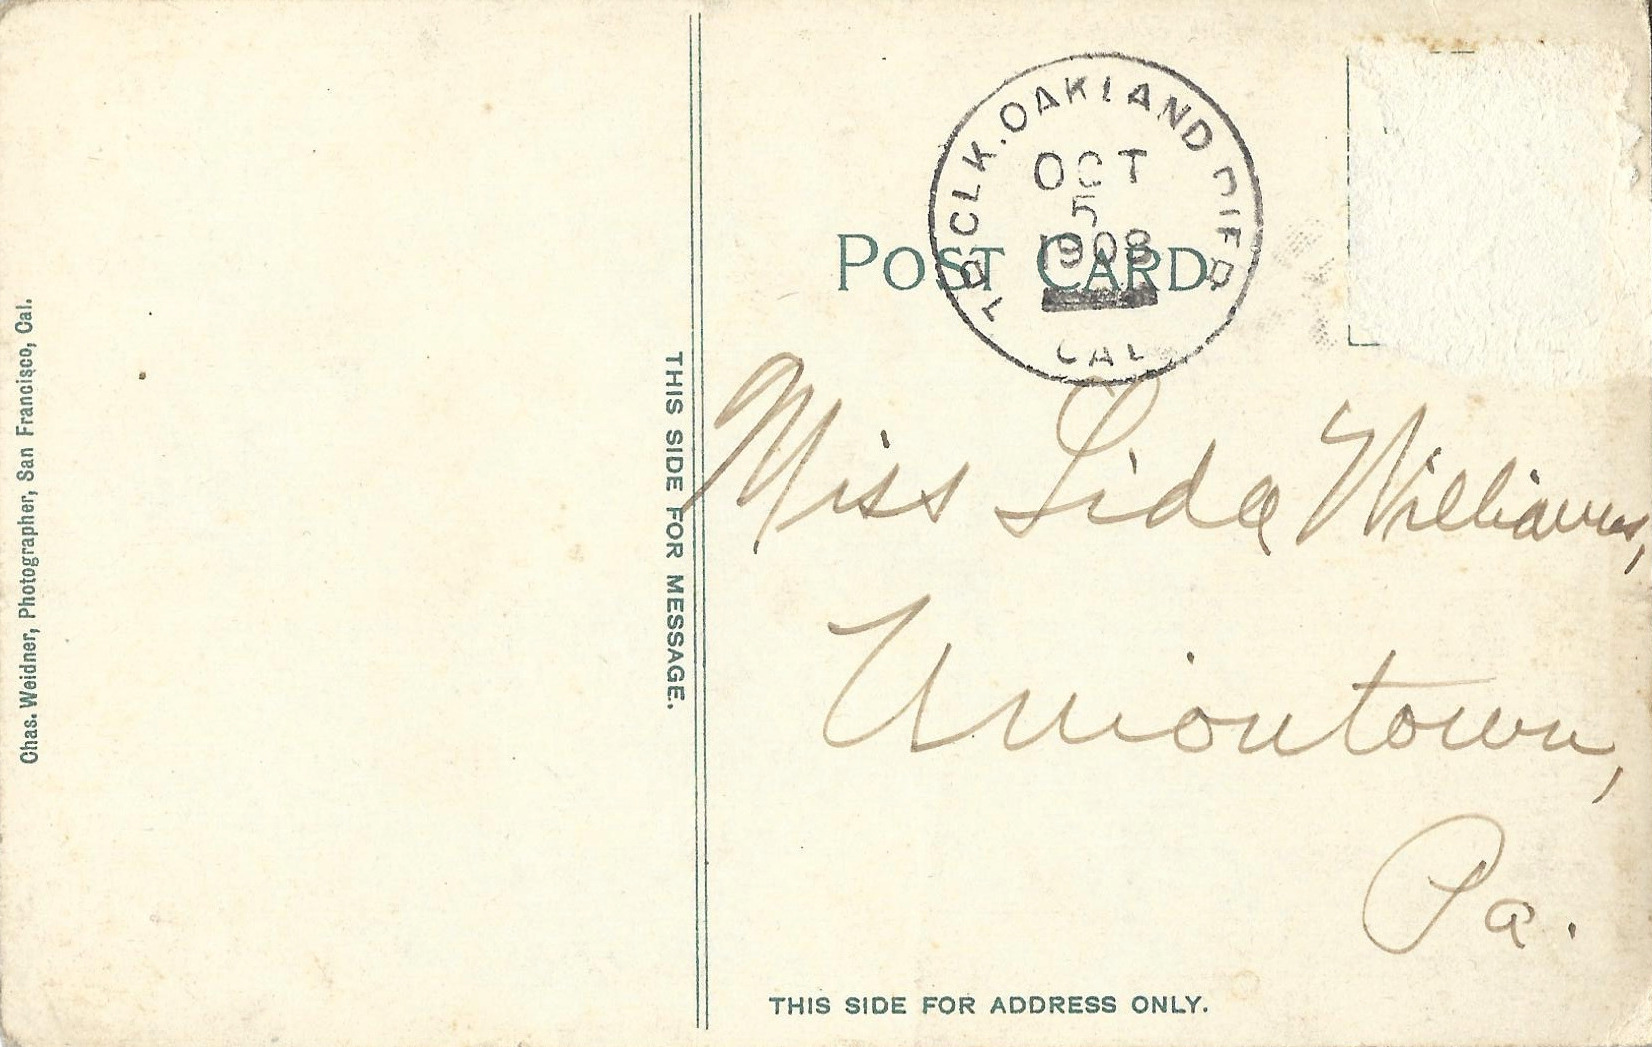 TR. CLK. OAKLAND PIER
OCT
5
1908
CAL
POST CARD
Miss Lida Williams,
Uniontown,
Pa.
THIS SIDE FOR ADDRESS ONLY.
THIS SIDE FOR MESSAGE.
Chas. Weidner, Photographer, San Francisco, Cal.